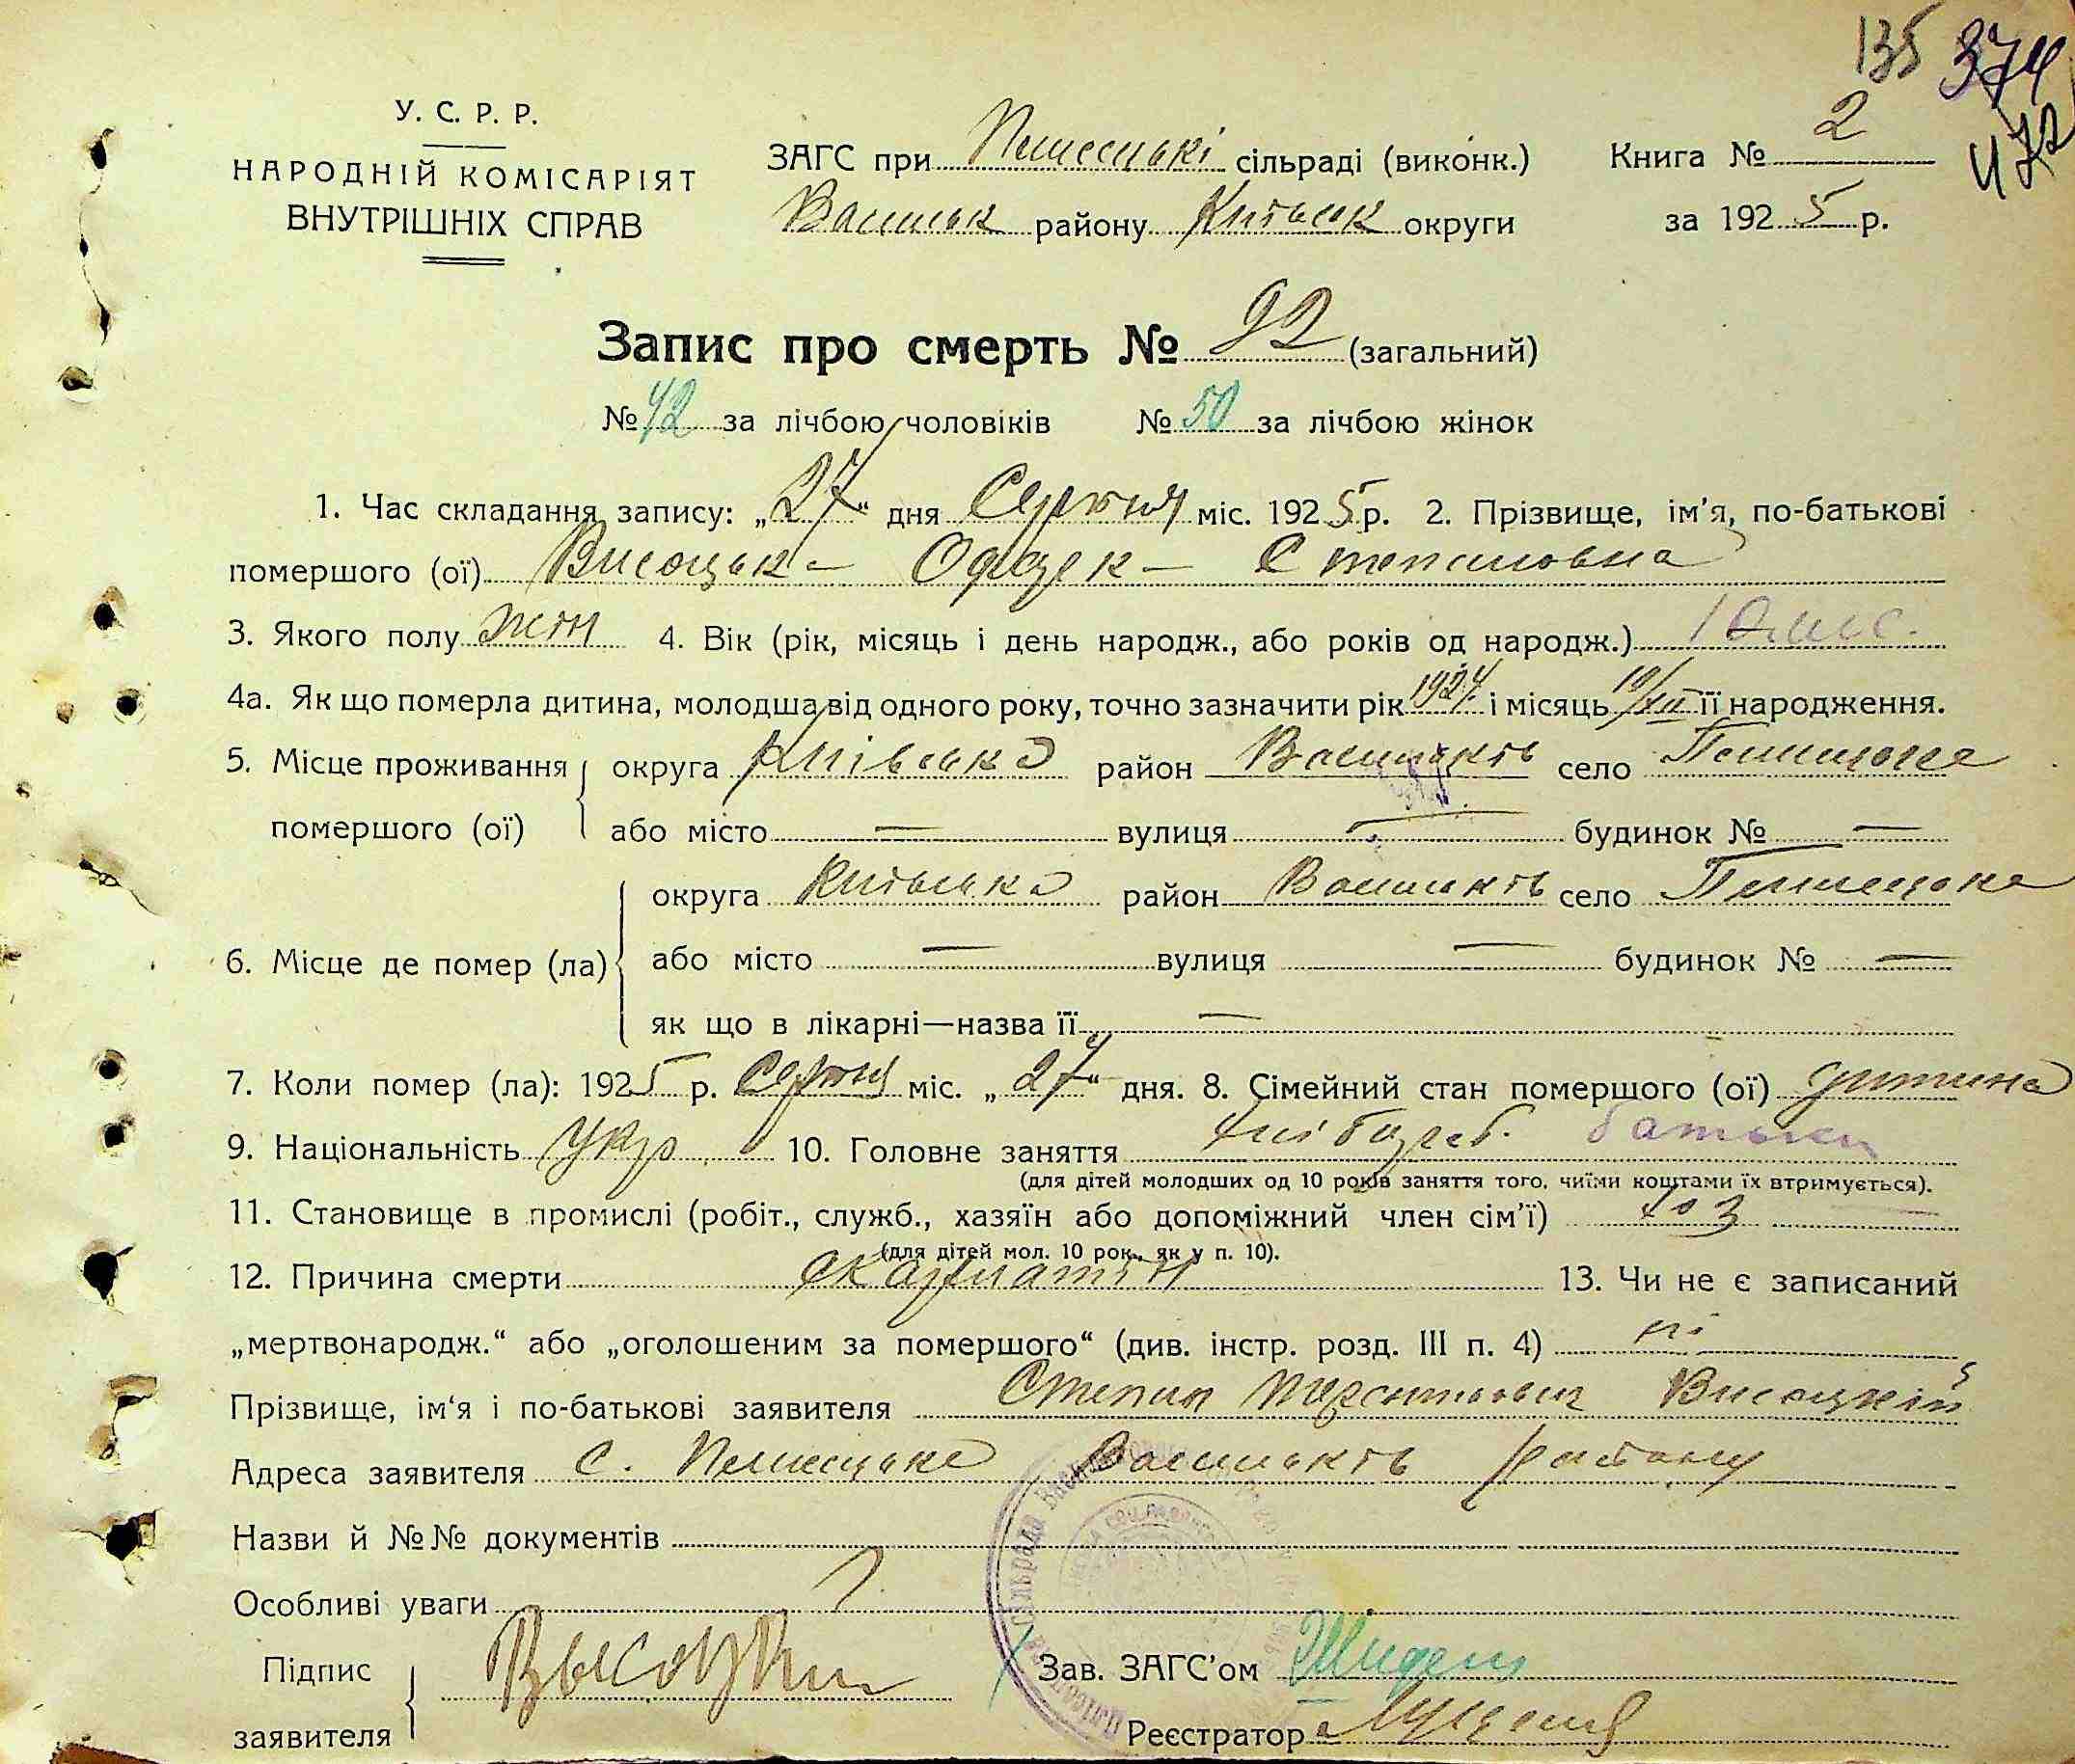 135 374
472
У. С. Р. Р.
НАРОДНІЙ КОМІСАРІЯТ
ВНУТРІШНІХ СПРАВ
ЗАГС при Плисецькі сільраді (виконк.)
Васильк району Київськ округи
Книга № 2
за 1925 р.
Запис про смерть № 92 (загальний)
№ 42 за лічбою чоловіків № 50 за лічбою жінок
1. Час складання запису: „27“ дня Серпня міс. 1925 р. 2. Прізвище, ім'я, по-батькові
помершого (ої) Висоцьк- Степановна
3. Якого полу жін 4. Вік (рік, місяць і день народж., або років од народж.)
4а. Як що померла дитина, молодша від одного року, точно зазначити рік 1924 і місяць 19/XII її народження.
5. Місце проживання
помершого (ої)
округа Київська район Васильків село Плисецьке
або місто — вулиця — будинок № —
6. Місце де помер (ла)
округа Київська район Васильків село Плисецьке
або місто — вулиця — будинок № —
як що в лікарні—назва її —
7. Коли помер (ла): 1925 р. Серпня міс. „27“ дня. 8. Сімейний стан помершого (ої) дитина
9. Національність Укр. 10. Головне заняття хлібороб. батьки
(для дітей молодших од 10 років заняття того, чиїми коштами їх втримується).
11. Становище в промислі (робіт., служб., хазяїн або допоміжний член сім'ї) хоз
(для дітей мол. 10 рок., як у п. 10).
12. Причина смерти скарлатін 13. Чи не є записаний
„мертвонародж.“ або „оголошеним за помершого“ (див. інстр. розд. III п. 4) ні
Прізвище, ім‘я і по-батькові заявителя Степан Терентьович Висоцкий
Адреса заявителя с. Плисецьке Васильків району
Назви й №№ документів
Особливі уваги
Підпис
заявителя
Высоцкий
Зав. ЗАГС'ом
Реєстратор